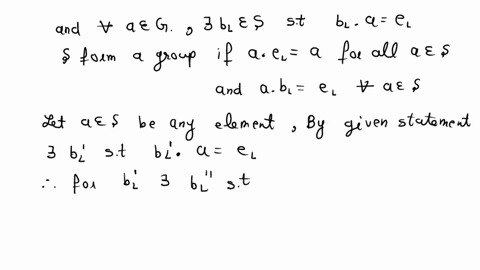 and ∀ a∈G , ∃ b_L∈S st b_L . a = e_L
S form a group if a . e_L = a for all a∈S
and a . b_L = e_L ∀ a∈S
Let a∈S be any element , By given statement
∃ b_L' s.t b_L' . a = e_L
∴ for b_L' ∃ b_L'' s.t